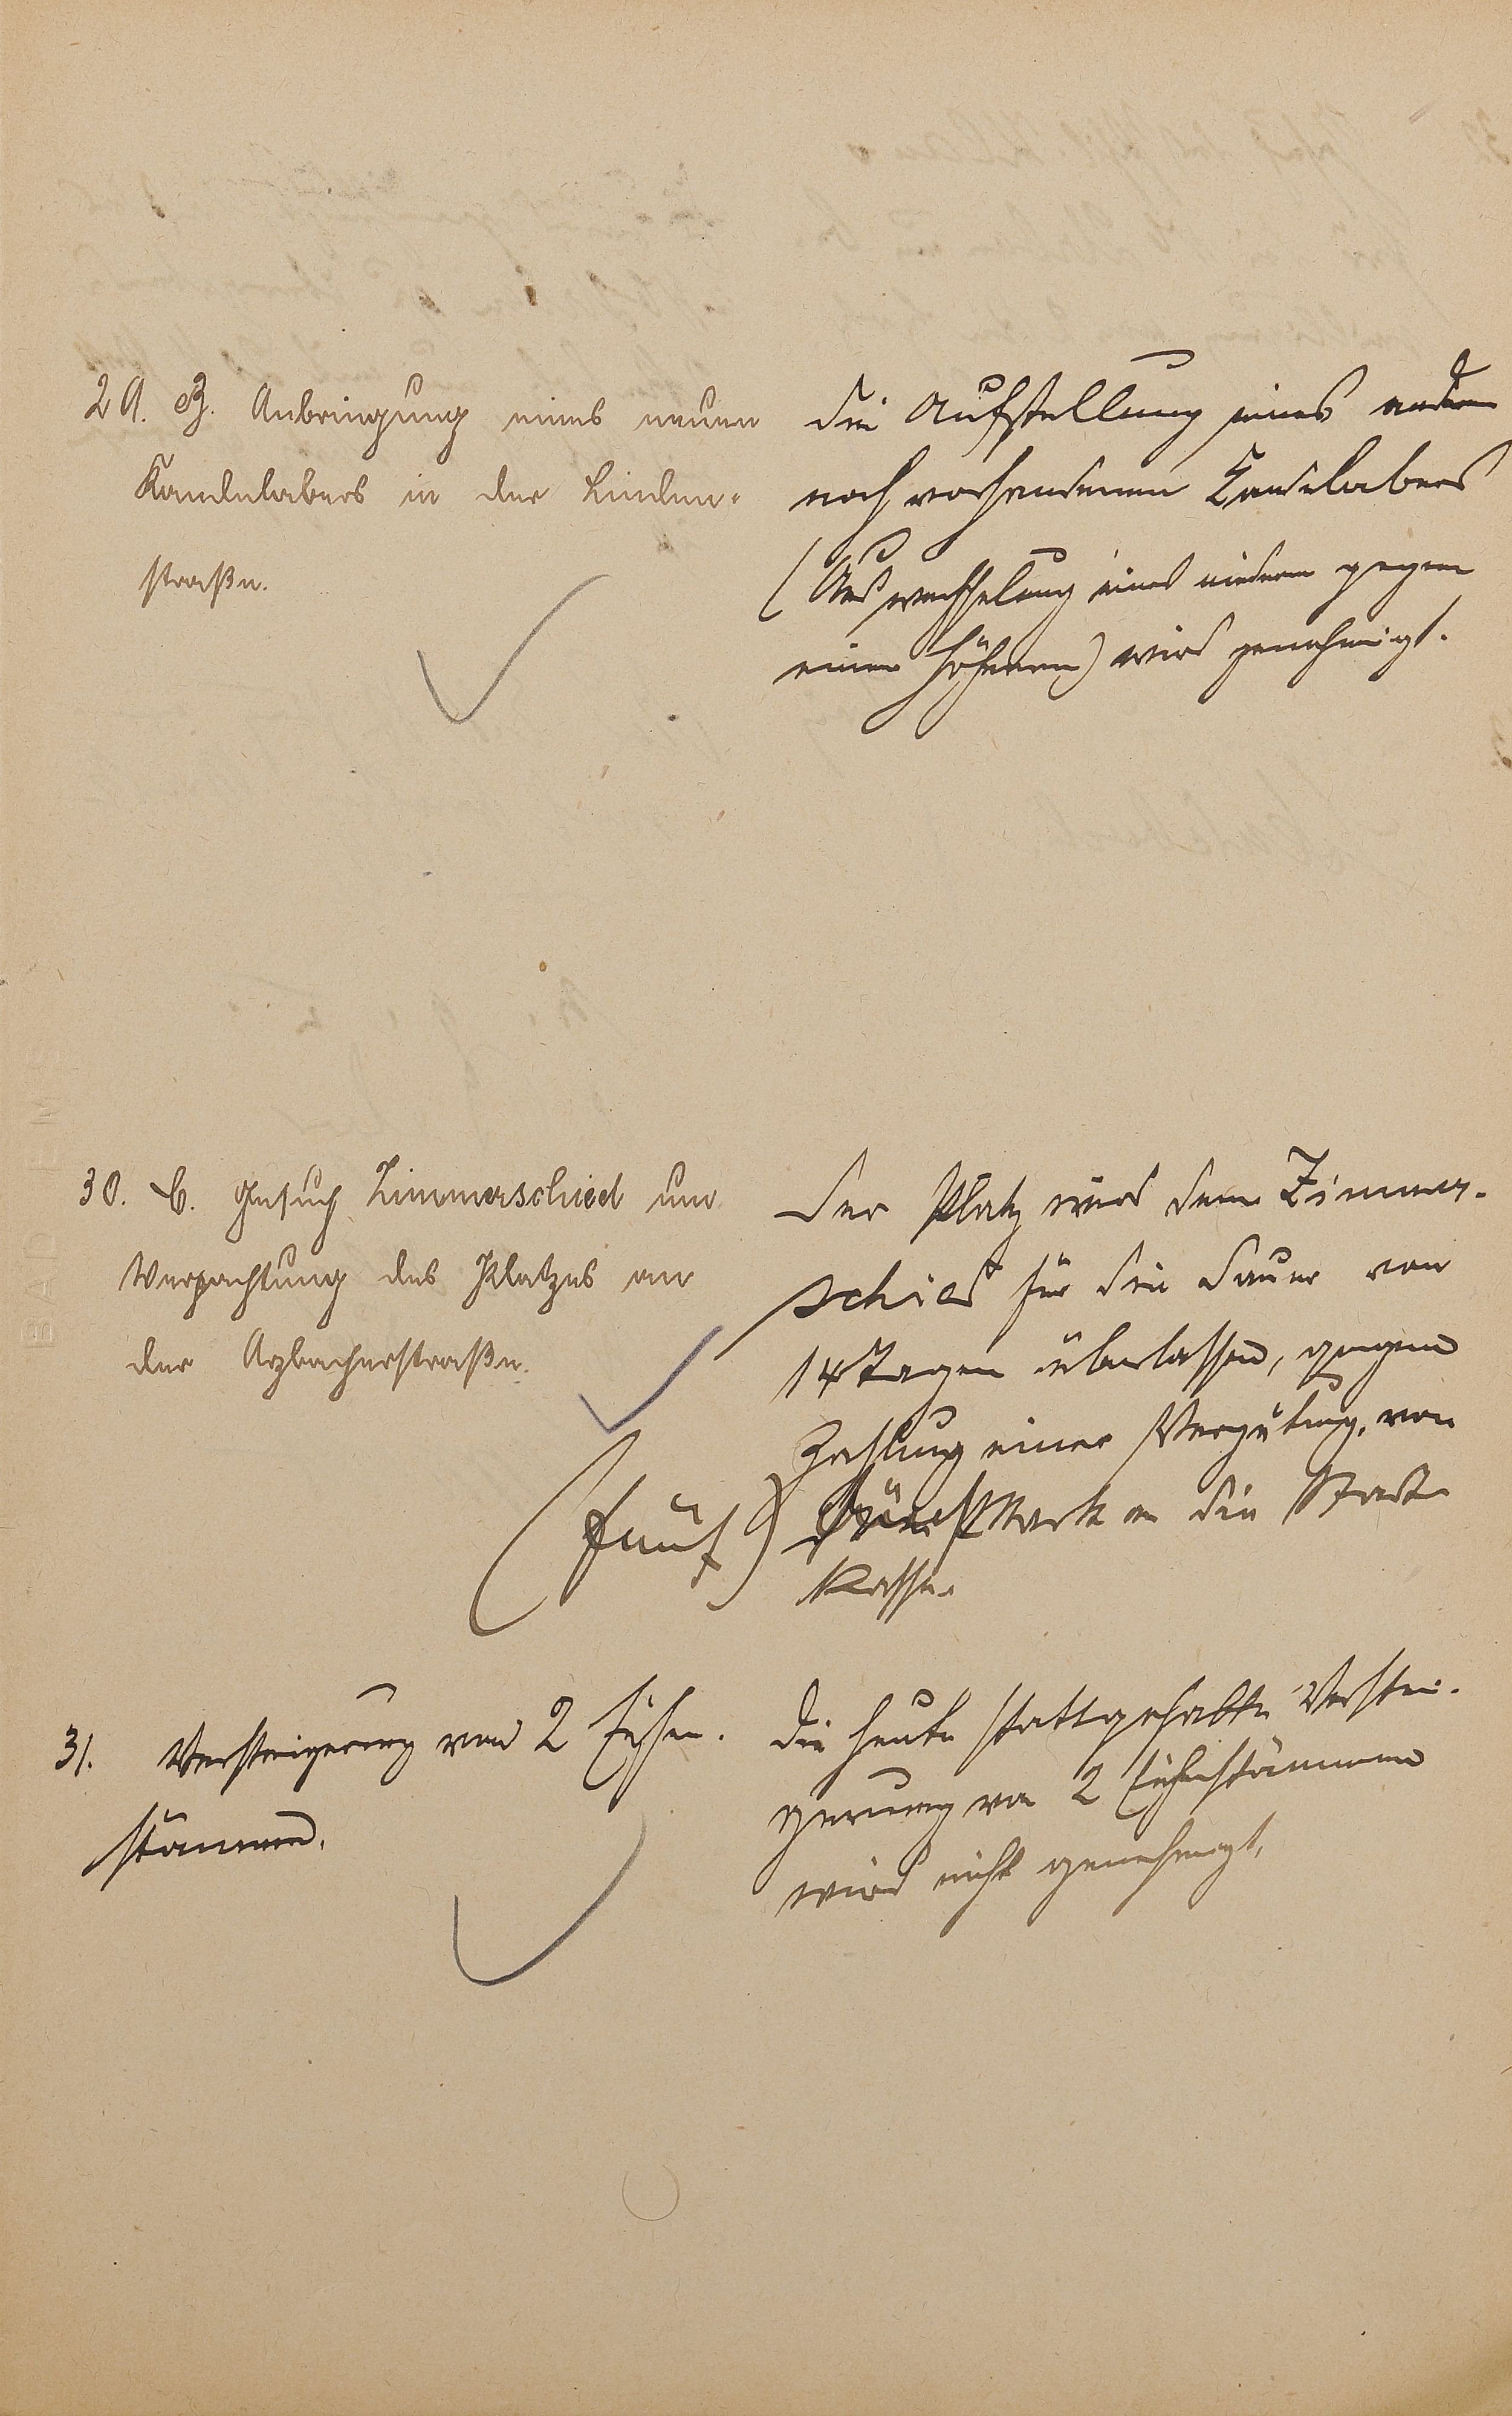 29. B. Anbringung eines neuen
Kandelabers in der Linden-
straße.
Die Aufstellung eines andern
noch vorhandenen Kandelabers
(Auswechselung eines niedern gegen
einen höheren) wird genehmigt.
30. C. Gesuch Zimmerschied um
Verpachtung des Platzes an
der Arzbacherstraße.
Der Platz wird dem Zimmer-
schied für die Dauer von
14 Tagen überlassen, gegen
Zahlung einer Vergütung von
(fünf) Mark an die Stadt-
kasse.
31. Versteigerung von 2 Eichen-
stämmen.
Die heute stattgehabte Verstei-
gerung von 2 Eichenstämmen
wird nicht genehmigt.
BAD EMS